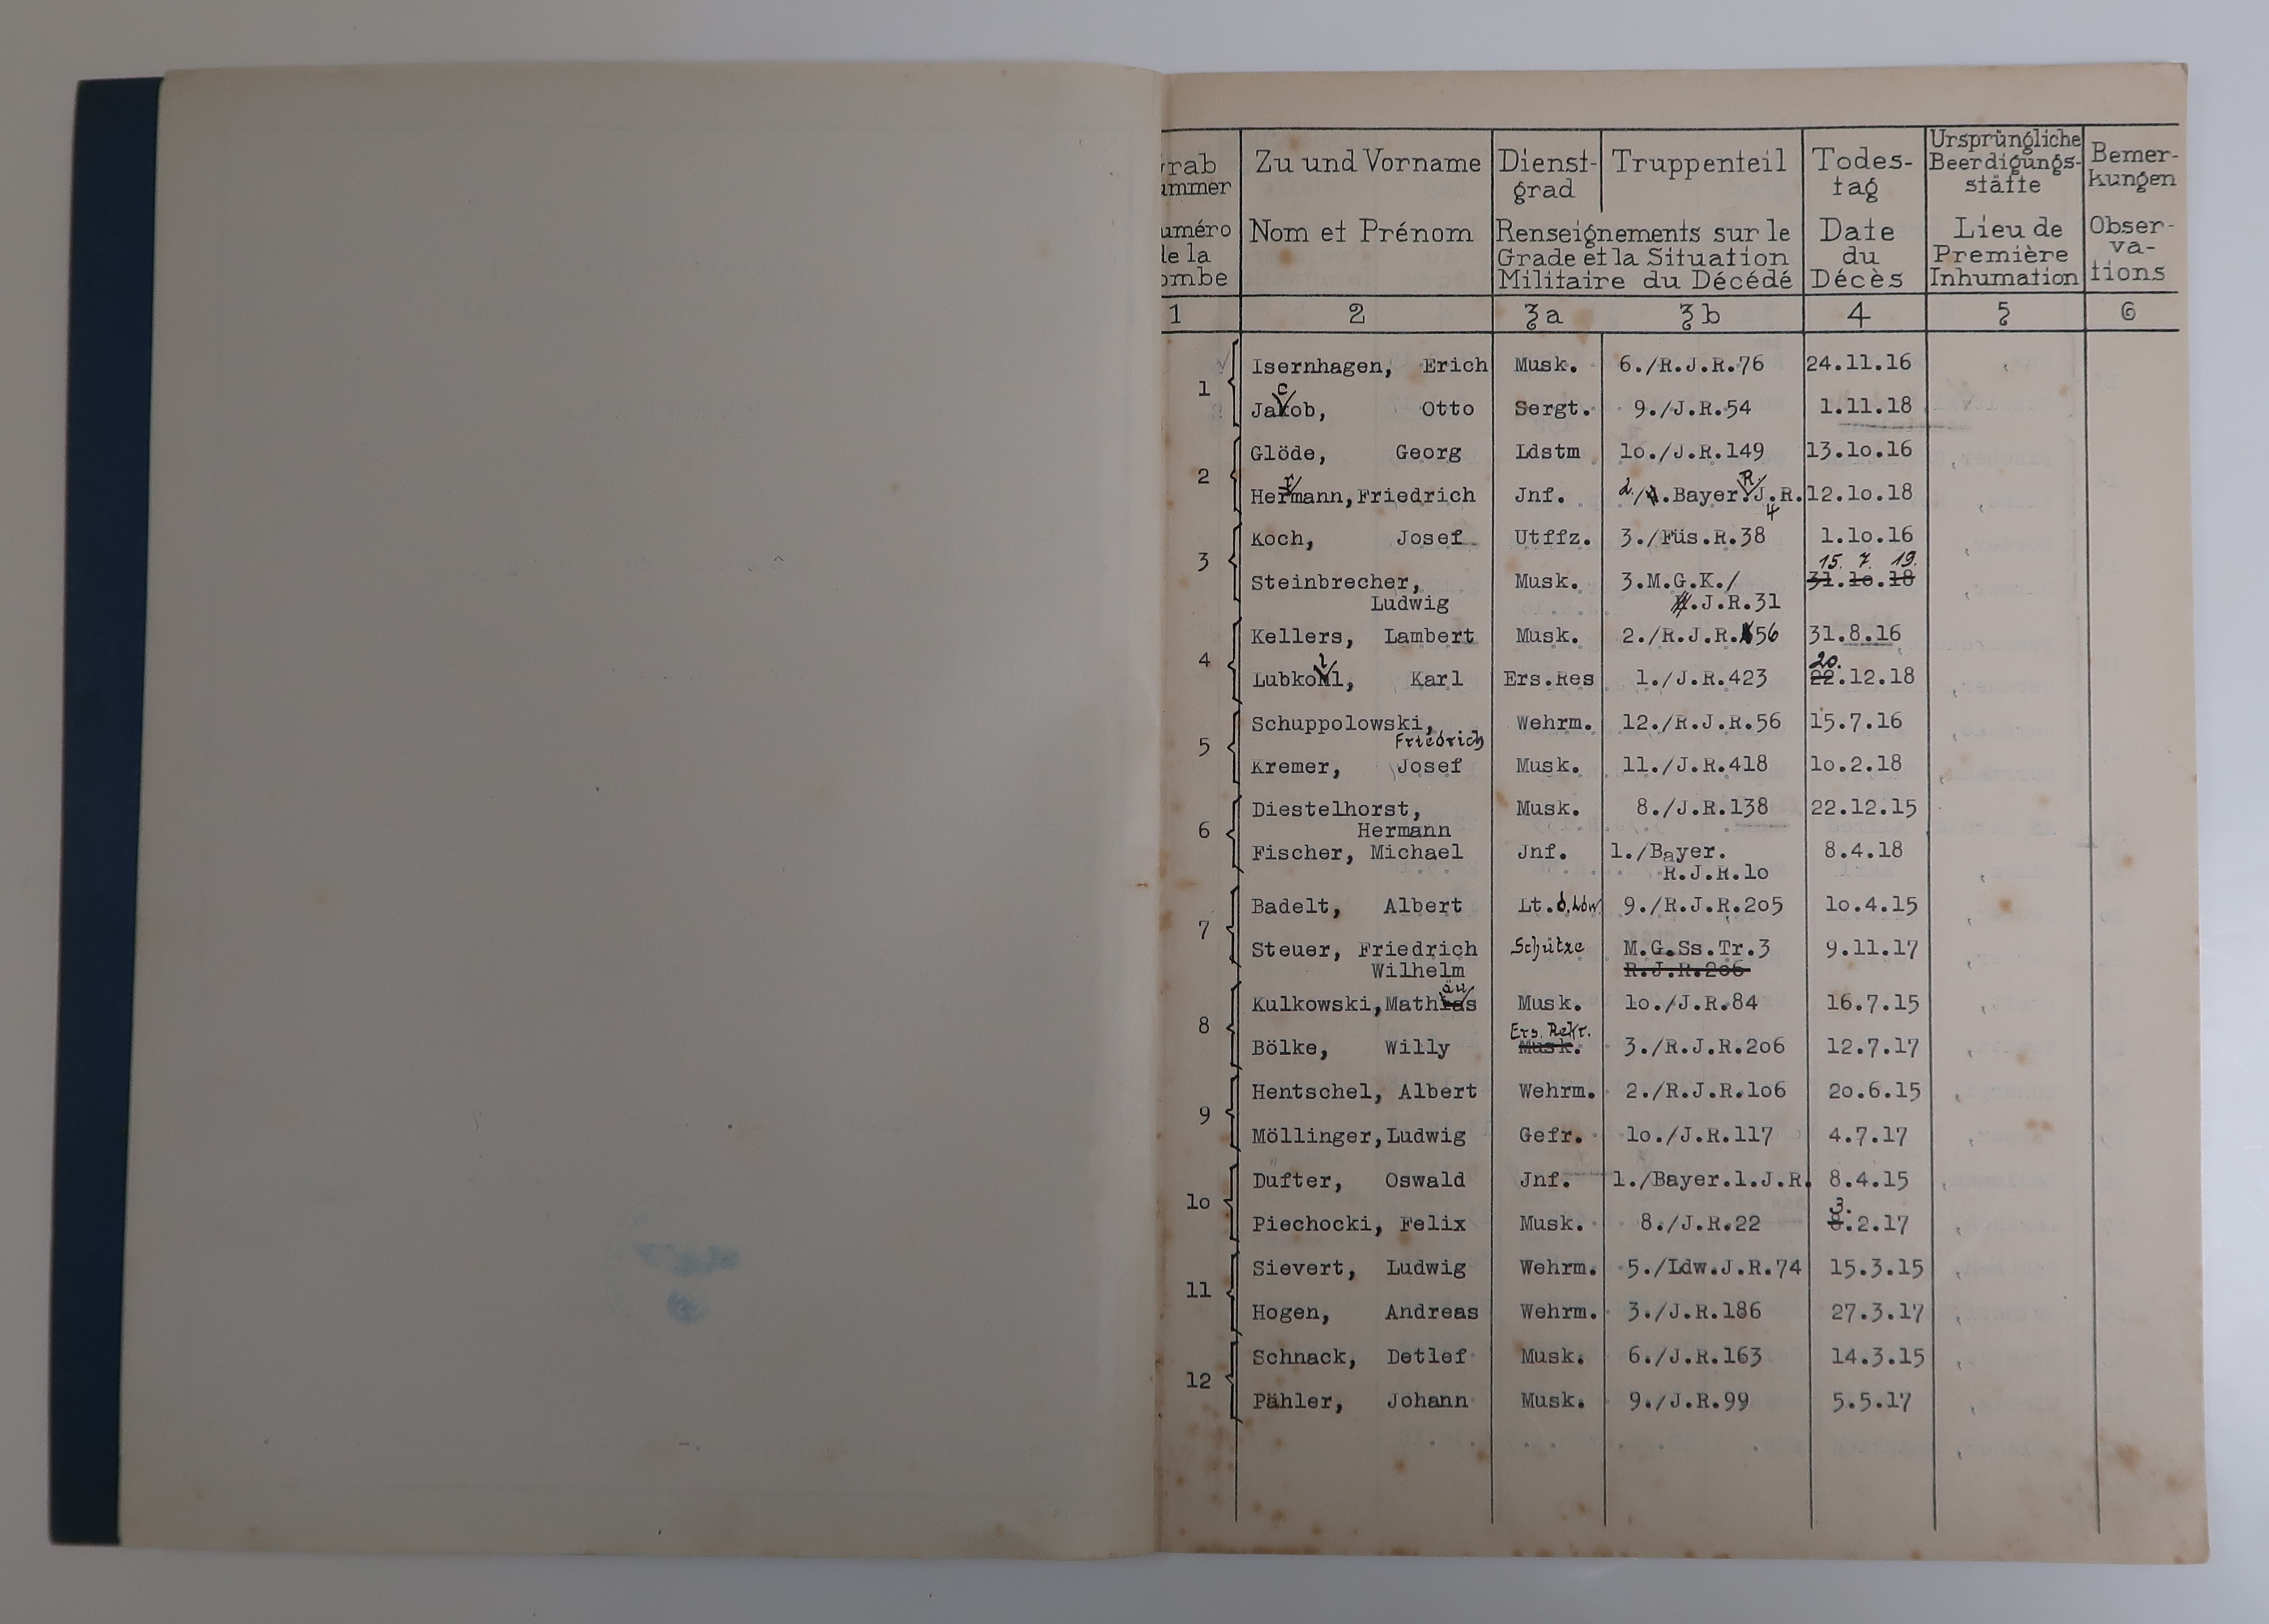 Grab Zu und Vorname Dienst- Truppenteil Todes- Ursprüngliche Bemer-
ummer grad tag Beerdigungs- kungen
stätte
uméro Nom et Prénom Renseignements sur le Date Lieu de Obser-
de la Grade et la Situation du Première va-
ombe Militaire du Décédé Décès Inhumation tions
1 2 3a 3b 4 5 6
1 Isernhagen, Erich Musk. 6./R.J.R.76 24.11.16
c
Jakob, Otto Sergt. 9./J.R.54 1.11.18
2 Glöde, Georg Ldstm 1o./J.R.149 13.1o.16
r R.
Hermann,Friedrich Jnf. 2./4.Bayer.J.R. 12.1o.18
4
3 Koch, Josef Utffz. 3./Füs.R.38 1.1o.16
15. 7. 19.
Steinbrecher, Musk. 3.M.G.K./ 31.1o.18
Ludwig .J.R.31
4 Kellers, Lambert Musk. 2./R.J.R.56 31.8.16
l 20.
Lubkohl, Karl Ers.Res 1./J.R.423 22.12.18
5 Schuppolowski, Wehrm. 12./R.J.R.56 15.7.16
Friedrich
Kremer, Josef Musk. 11./J.R.418 1o.2.18
6 Diestelhorst, Musk. 8./J.R.138 22.12.15
Hermann
Fischer, Michael Jnf. 1./Bayer. 8.4.18
R.J.R.1o
7 Badelt, Albert Lt.d.Ldw. 9./R.J.R.2o5 1o.4.15
Steuer, Friedrich Schütze M.G.Ss.Tr.3 9.11.17
Wilhelm R.J.R.2o6
äu
8 Kulkowski,Mathias Musk. 1o./J.R.84 16.7.15
Ers. Rekr.
Bölke, Willy Musk. 3./R.J.R.2o6 12.7.17
9 Hentschel, Albert Wehrm. 2./R.J.R.1o6 2o.6.15
Möllinger,Ludwig Gefr. 1o./J.R.117 4.7.17
1o Dufter, Oswald Jnf. 1./Bayer.1.J.R. 8.4.15
3.
Piechocki, Felix Musk. 8./J.R.22 8.2.17
11 Sievert, Ludwig Wehrm. 5./Ldw.J.R.74 15.3.15
Hogen, Andreas Wehrm. 3./J.R.186 27.3.17
12 Schnack, Detlef Musk. 6./J.R.163 14.3.15
Pähler, Johann Musk. 9./J.R.99 5.5.17